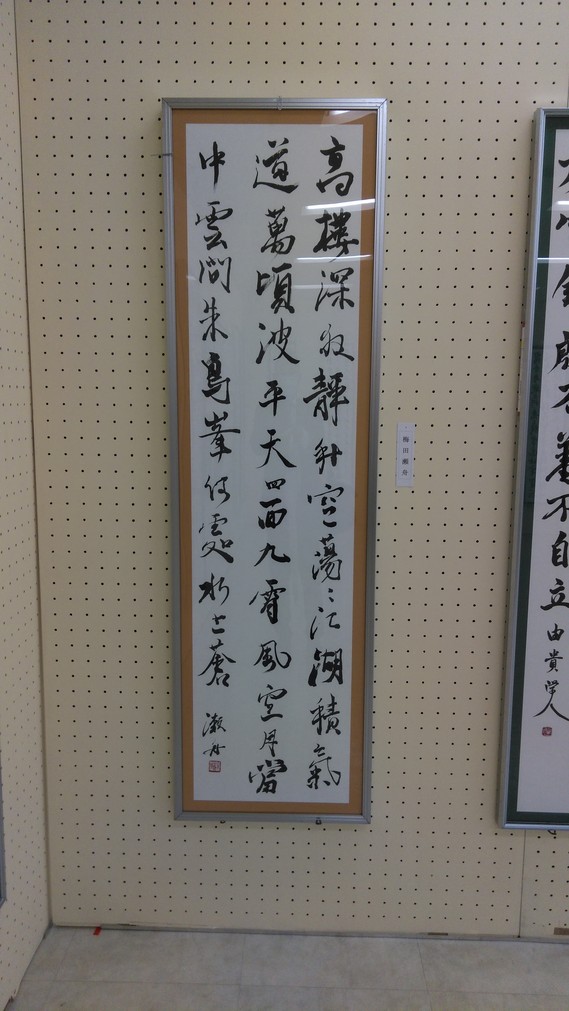 高樓深夜靜秋空蕩〻江湖積氣
道萬頃波平天四面九霄風定月當
中雲間朱鳥峯何處水上蒼
瀬舟
梅田瀬舟
不自立
由貴